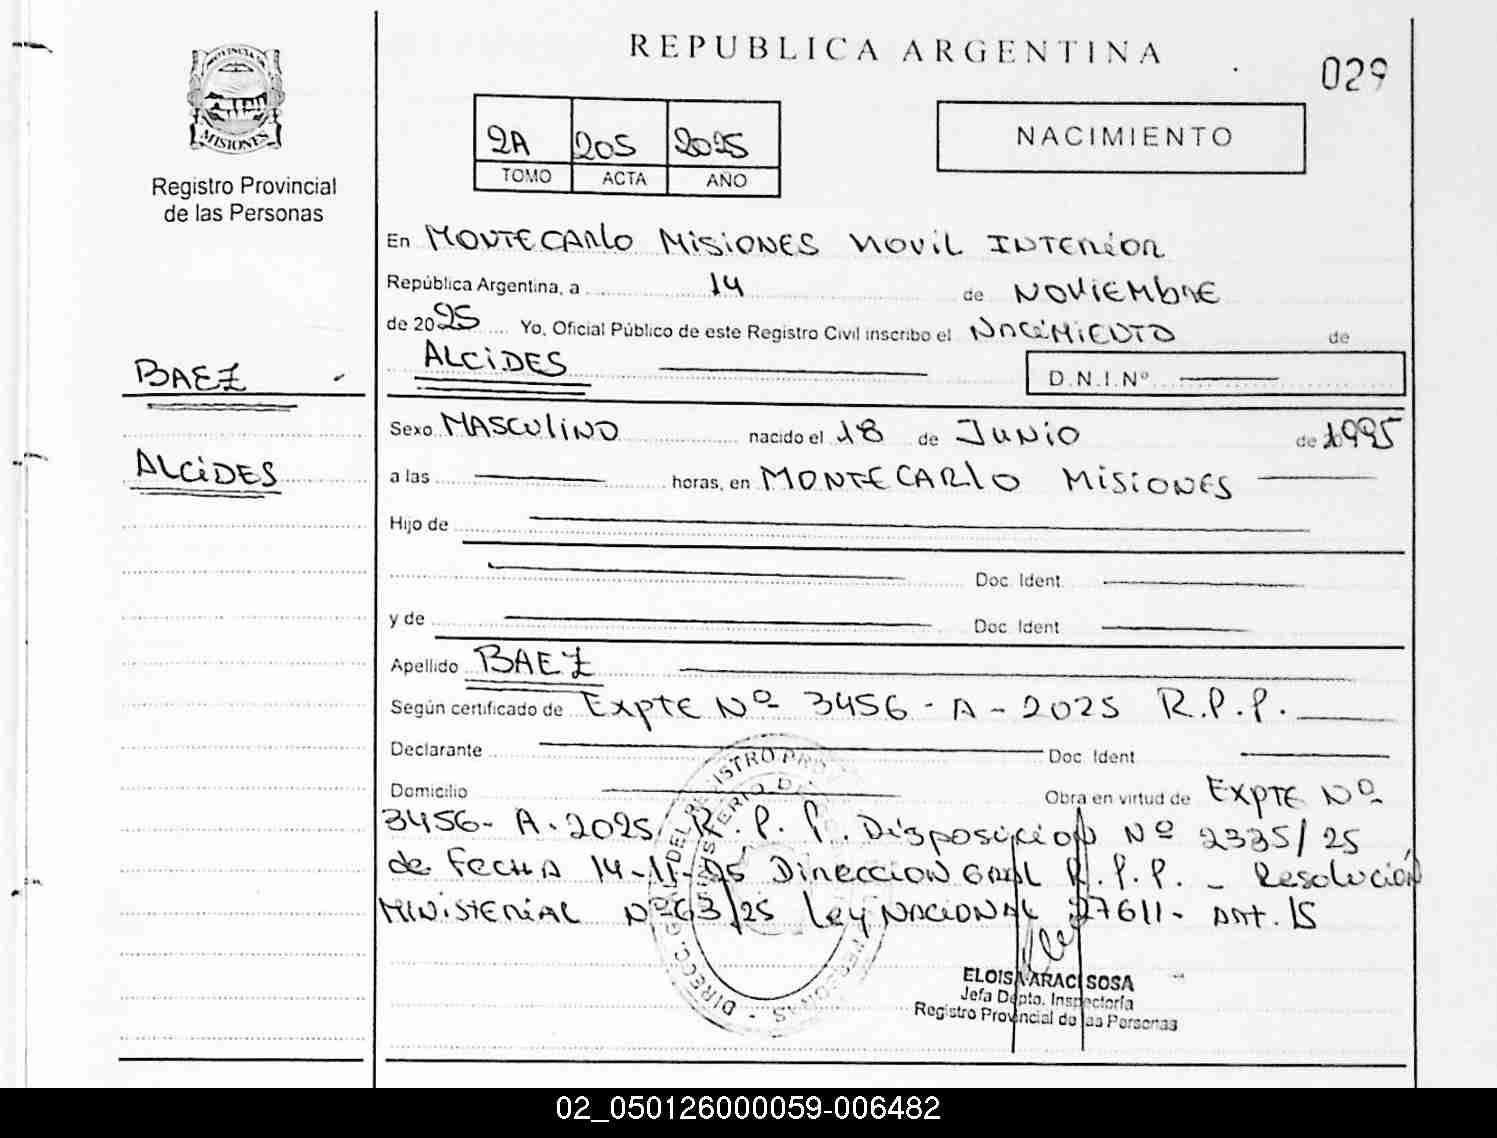 PROVINCIA
MISIONES
Registro Provincial
de las Personas
REPUBLICA ARGENTINA
029
2A 205 2025
TOMO ACTA AÑO
NACIMIENTO
En MONTECARLO MISIONES MOVIL INTERIOR
República Argentina, a 14 de NOVIEMBRE
de 2025 Yo, Oficial Público de este Registro Civil inscribo el NACIMIENTO de
ALCIDES D.N.I.Nº
BAEZ
ALCIDES
Sexo MASCULINO nacido el 18 de JUNIO de 1995
a las horas, en MONTECARLO MISIONES
Hijo de
Doc. Ident
y de Doc. Ident
Apellido BAEZ
Según certificado de EXPTE Nº 3456-A-2025 R.P.P.
Declarante Doc. Ident
Domicilio Obra en virtud de EXPTE Nº
3456-A-2025 R.P.P. Disposicion Nº 2335/25
de FECHA 14-11-25 Direccion GRAL R.P.P. - Resolución
MINISTERIAL Nº 63/25 Ley NACIONAL 27611- ART. 15
ELOISA ARACI SOSA
Jefa Dpto. Inspectoría
Registro Provincial de las Personas
02_050126000059-006482